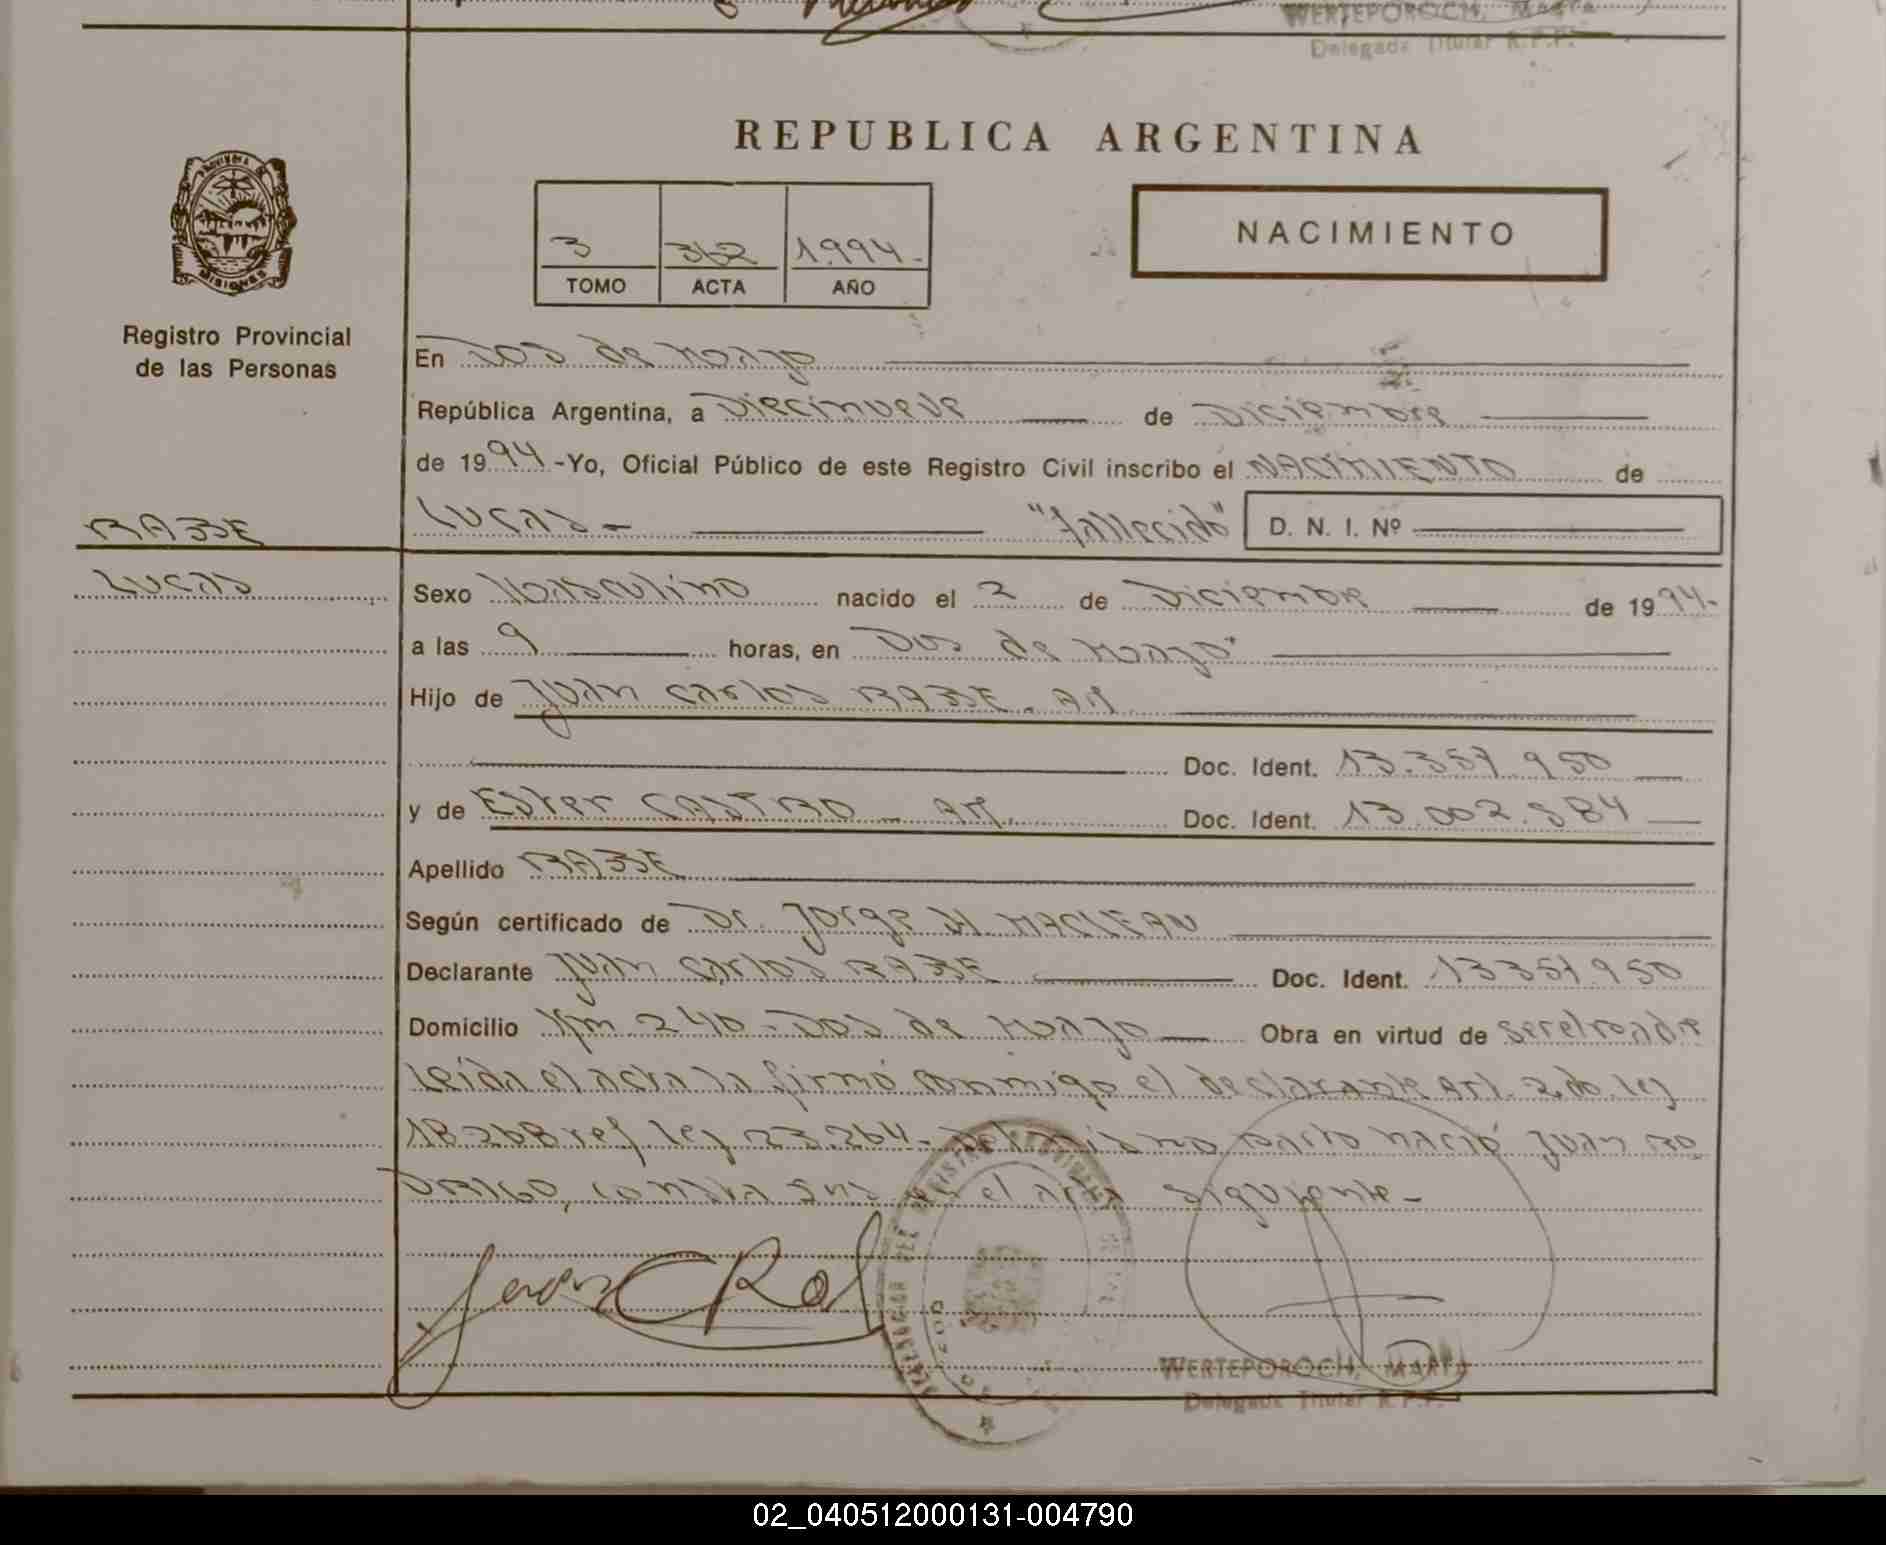 WERTEPOROCH, Marta
Delegada Titular R.P.P.
REPUBLICA ARGENTINA
PROVINCIA DE
MISIONES
Registro Provincial
de las Personas
3 362 1.994.-
TOMO ACTA AÑO
NACIMIENTO
En Dos de Mayo
República Argentina, a Diecinueve de Diciembre
de 1994 -Yo, Oficial Público de este Registro Civil inscribo el NACIMIENTO de
LUCAS - "fallecido" D. N. I. Nº
RABE
LUCAS
Sexo Masculino nacido el 2 de Diciembre de 1994-
a las 9 horas, en Dos de Mayo
Hijo de Juan Carlos RABE. Arg
Doc. Ident. 13.357.950
y de Ester CASTRO - Arg. Doc. Ident. 13.002.584
Apellido RABE
Según certificado de Dr. Jorge H. MACLEAN
Declarante Juan Carlos RABE Doc. Ident. 13357.950
Domicilio Km 240 - Dos de Mayo Obra en virtud de ser el padre
Leída el acta la firmó conmigo el declarante Art. 2do. ley
18.268 ref ley 23.264.- Del mismo parto nació Juan Ro
DRIGO, consta en el acta siguiente -
WERTEPOROCH, MARTA
Delegada Titular R.P.P.
02_040512000131-004790